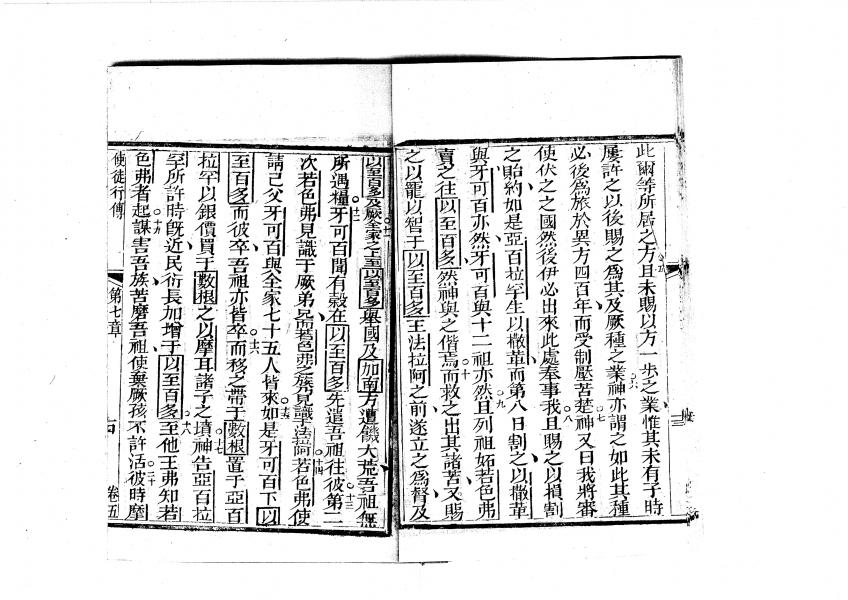 此爾等所居之方且未賜以方一步之業惟其未有子時
屢許之以後賜之爲其及厥種之業神亦謂之如此其種
必後爲旅於異方四百年而受制壓苦楚神又曰我將審
使伏之之國然後伊必出來此處奉事我且賜之以損割
之貽約如是亞百拉罕生以撒革而第八日割之以撒革
與牙可百亦然牙可百與十二祖亦然且列祖妬若色弗
賣之往以至百多然神與之偕焉而救之出其諸苦又賜
之以寵以智于以至百多王法拉阿之前遂立之爲督及
以至百多及厥全家之上至以至百多舉國及加南方遭饑大荒吾祖無
所遇糧牙可百聞有穀在以至百多先遣吾祖往彼第二
次若色弗見識于厥弟兄而若色弗之族見識于法拉阿若色弗使
請己父牙可百與全家七十五人皆來如是牙可百下以
至百多而彼卒吾祖亦皆卒而移之帶于數根置于亞百
拉罕以銀價買于數根之以摩耳諸子之墳神告亞百拉
罕所許時旣近民衍長加增于以至百多至他王弗知若
色弗者起謀害吾族苦磨吾祖使棄厥孩不許活彼時摩
使徒行傳 第七章 卷五